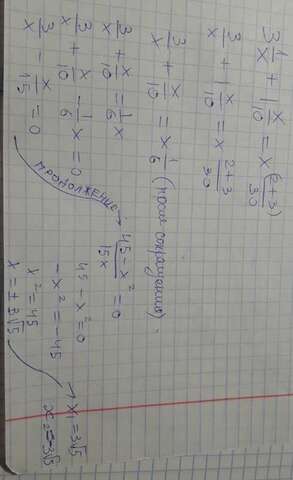 3 1/x + 1 x/10 = x (2+3)/30
3/x + 1 x/10 = x 2+3/30
3/x + x/10 = x 1/6 (после сокращения)
3/x + x/10 = 1/6 x
3/x + x/10 - 1/6 x = 0
3/x - x/15 = 0
продолжение
45 - x²/15x = 0
45 - x² = 0
-x² = -45
x² = 45
x = ±3√5
→ x₁ = 3√5
x₂ = -3√5